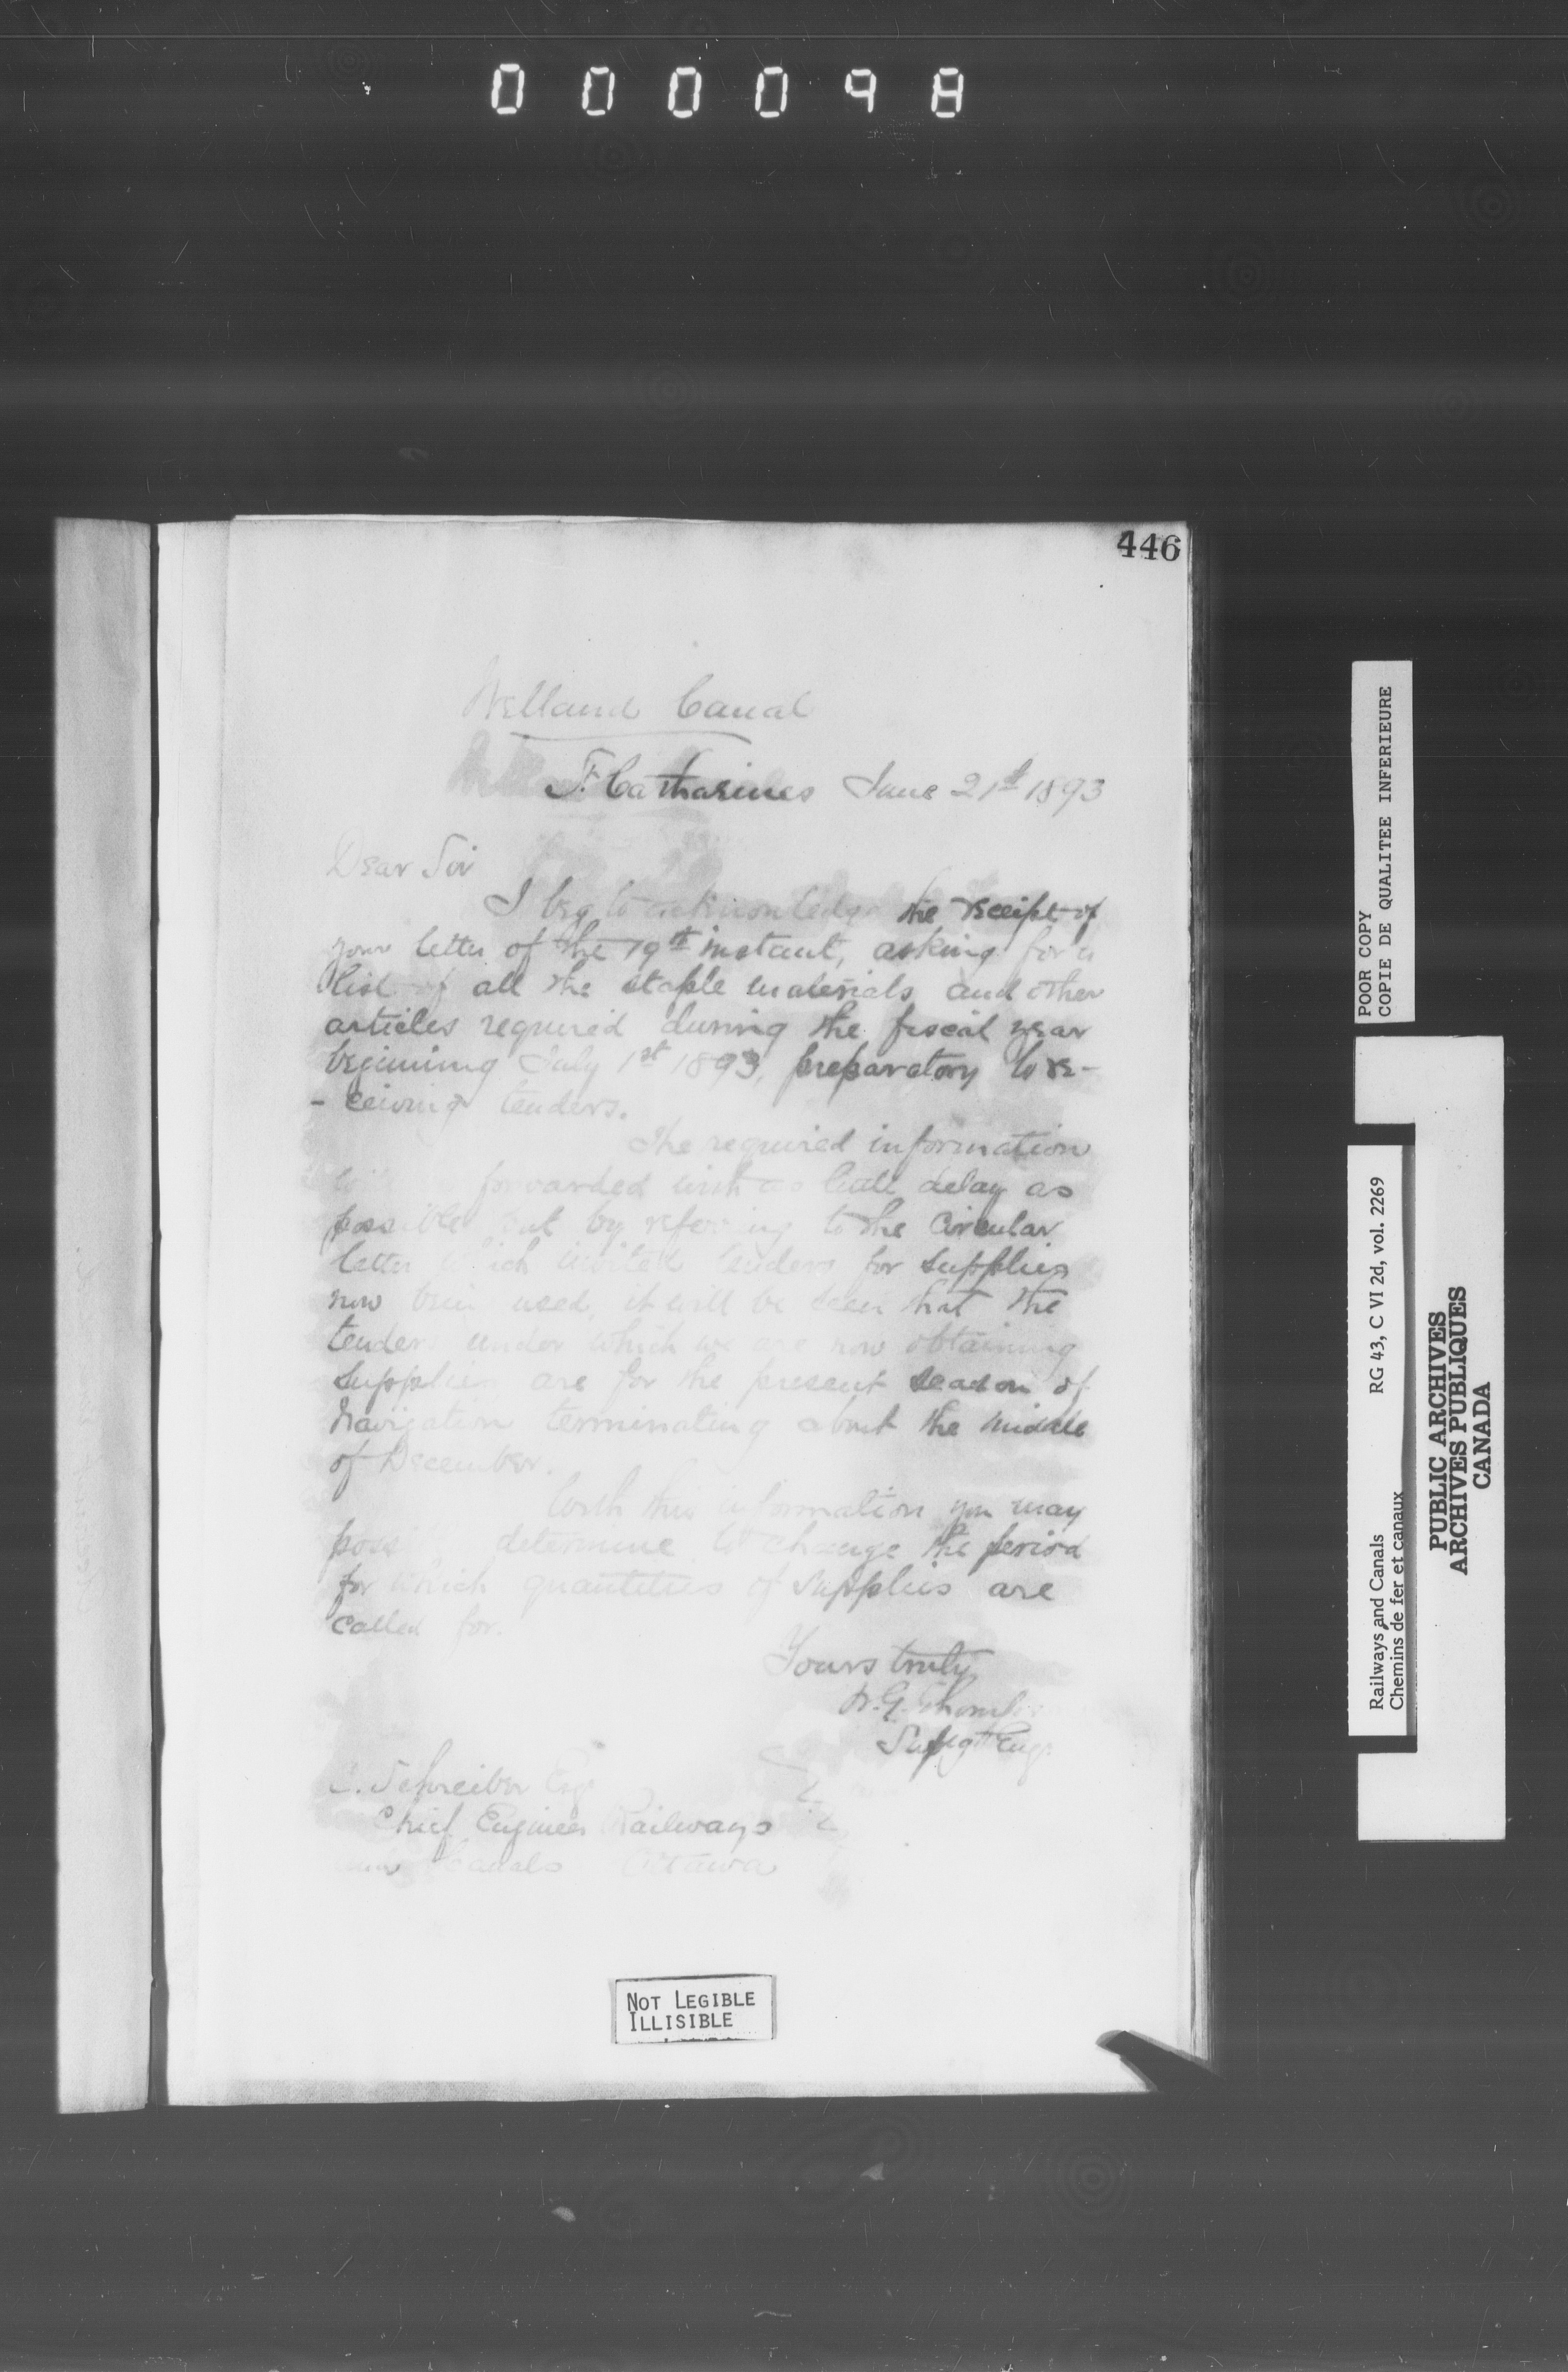 000098
446
Welland Canal
St. Catharines June 21st 1893
Dear Sir
I beg to acknowledge the receipt of
your letter of the 19th instant, asking for a
list of all the staple materials and other
articles required during the fiscal year
beginning July 1st 1893, preparatory to re-
- ceiving tenders.
The required information
forwarded with as little delay as
possible but by referring to the Circular
letter which invited tenders for supplies
now being used it will be seen that the
tenders under which we are now obtaining
supplies are for the present season of
Navigation terminating about the middle
of December.
With this information you may
possibly determine to change the period
for which quantities of supplies are
called for.
Yours truly
W. G. Thompson
Supg Engr
C. Schreiber Esqr
Chief Engineer Railways
and Canals Ottawa
NOT LEGIBLE
ILLISIBLE
POOR COPY
COPIE DE QUALITEE INFERIEURE
Railways and Canals RG 43, C VI 2d, vol. 2269
Chemins de fer et canaux
PUBLIC ARCHIVES
ARCHIVES PUBLIQUES
CANADA